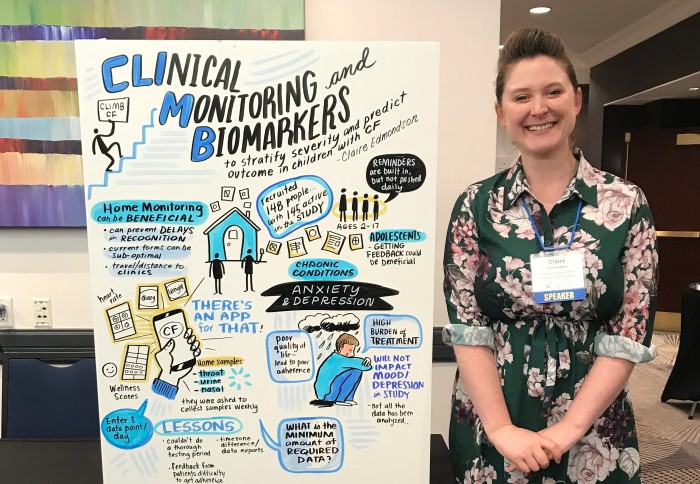 CLINICAL
MONITORING and
BIOMARKERS
to stratify severity and predict
outcome in children with CF
- Claire Edmondson
CLIMB
CF
Home Monitoring
can be BENEFICIAL
• can prevent DELAYS
in RECOGNITION
• current forms can be
sub-optimal
• travel/distance to
clinics
recruited
148 people...
with 145 active
in the STUDY
REMINDERS
are built in,
but not pushed
daily
AGES 2-17
ADOLESCENTS
- GETTING
FEEDBACK could
be beneficial
CHRONIC
CONDITIONS
ANXIETY
& DEPRESSION
heart
rate
diary
weight
CF
Wellness
Scores
THERE'S AN
APP
for THAT!
Home Samples
• throat
• urine
• nasal
they were asked to
collect samples weekly
Poor
quality of
life -
lead to poor
adherence
HIGH
BURDEN of
TREATMENT
WILL NOT
IMPACT
MOOD/
DEPRESSION
in STUDY
- not all the
data has been
analyzed...
Enter 1
data point/
day
LESSONS
• couldn't do
a thorough
testing period
• timezone
difference/
data exports
• feedback from
patients difficulty
to get adherence
WHAT is the
MINIMUM
amount of
REQUIRED
DATA?
Claire
SPEAKER